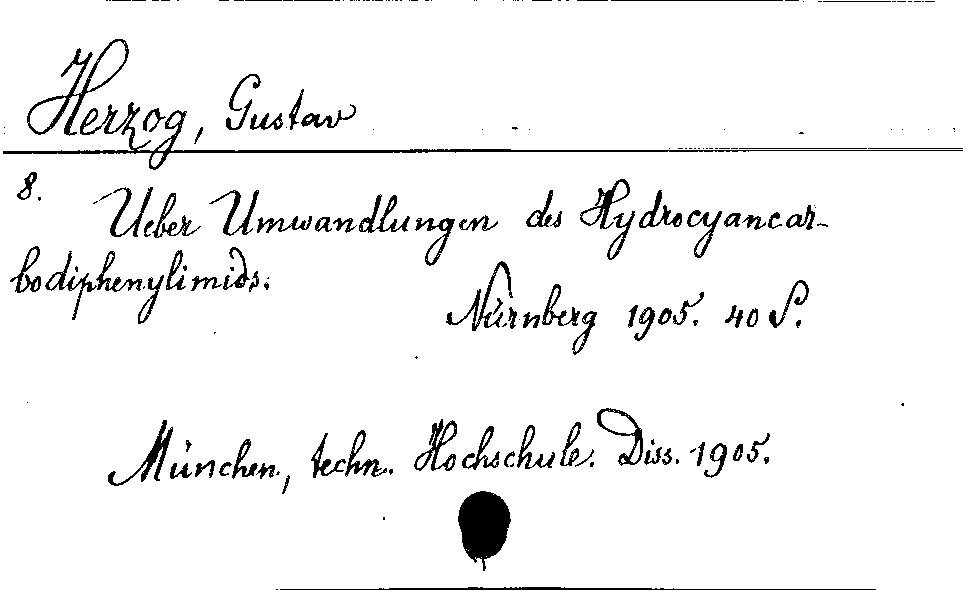 Herzog, Gustav
8.
Ueber Umwandlungen des Hydrocyancar-
bodiphenylimids.
Nürnberg 1905. 40 S.
München, techn. Hochschule. Diss. 1905.